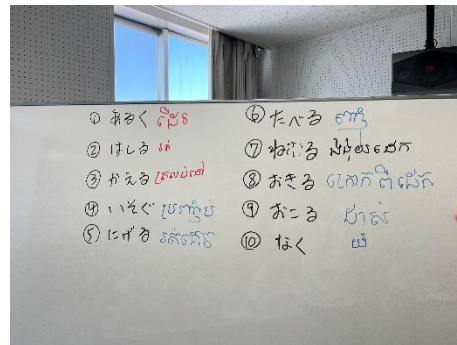 ① あるく ដើរ
② はしる រត់
③ かえる ត្រលប់ទៅ
④ いそぐ ប្រញ៉ាប់
⑤ にげる រត់គេច
⑥ たべる ញ៉ាំ
⑦ ងងុយដេក
⑧ おきる ក្រោកពីដេក
⑨ おこる ដាស់
⑩ なく យំ